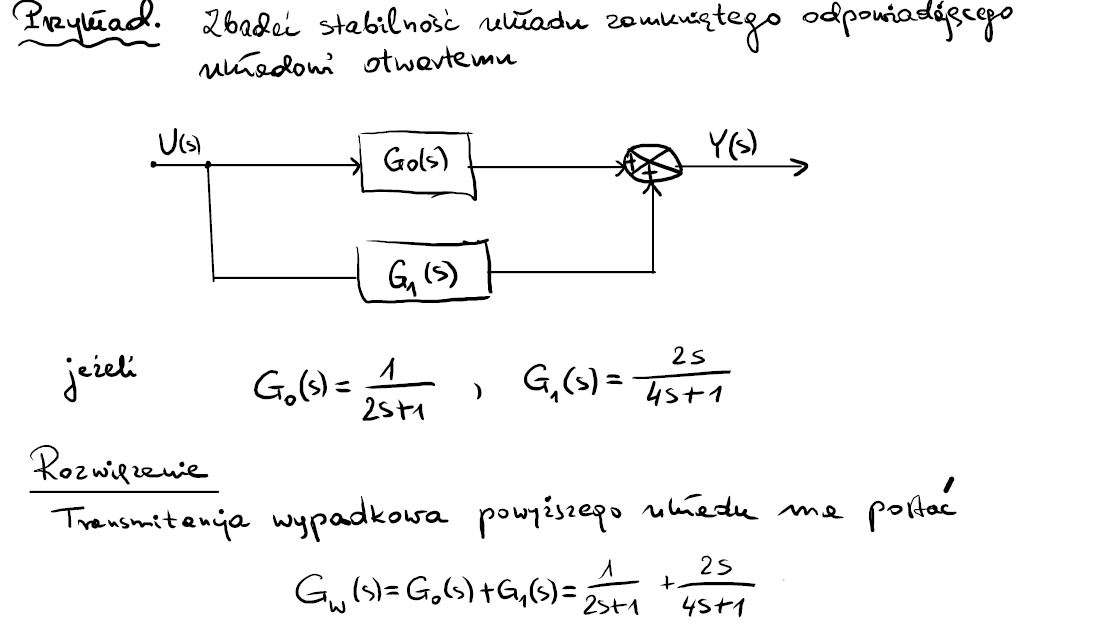 Przykład. Zbadać stabilność układu zamkniętego odpowiadającego
układowi otwartemu
U(s)
G₀(s)
Y(s)
+
+
G₁(s)
jeżeli G₀(s) = 1/(2s+1) , G₁(s) = 2s/(4s+1)
Rozwiązanie
Transmitancja wypadkowa powyższego układu ma postać
G_w(s) = G₀(s) + G₁(s) = 1/(2s+1) + 2s/(4s+1)